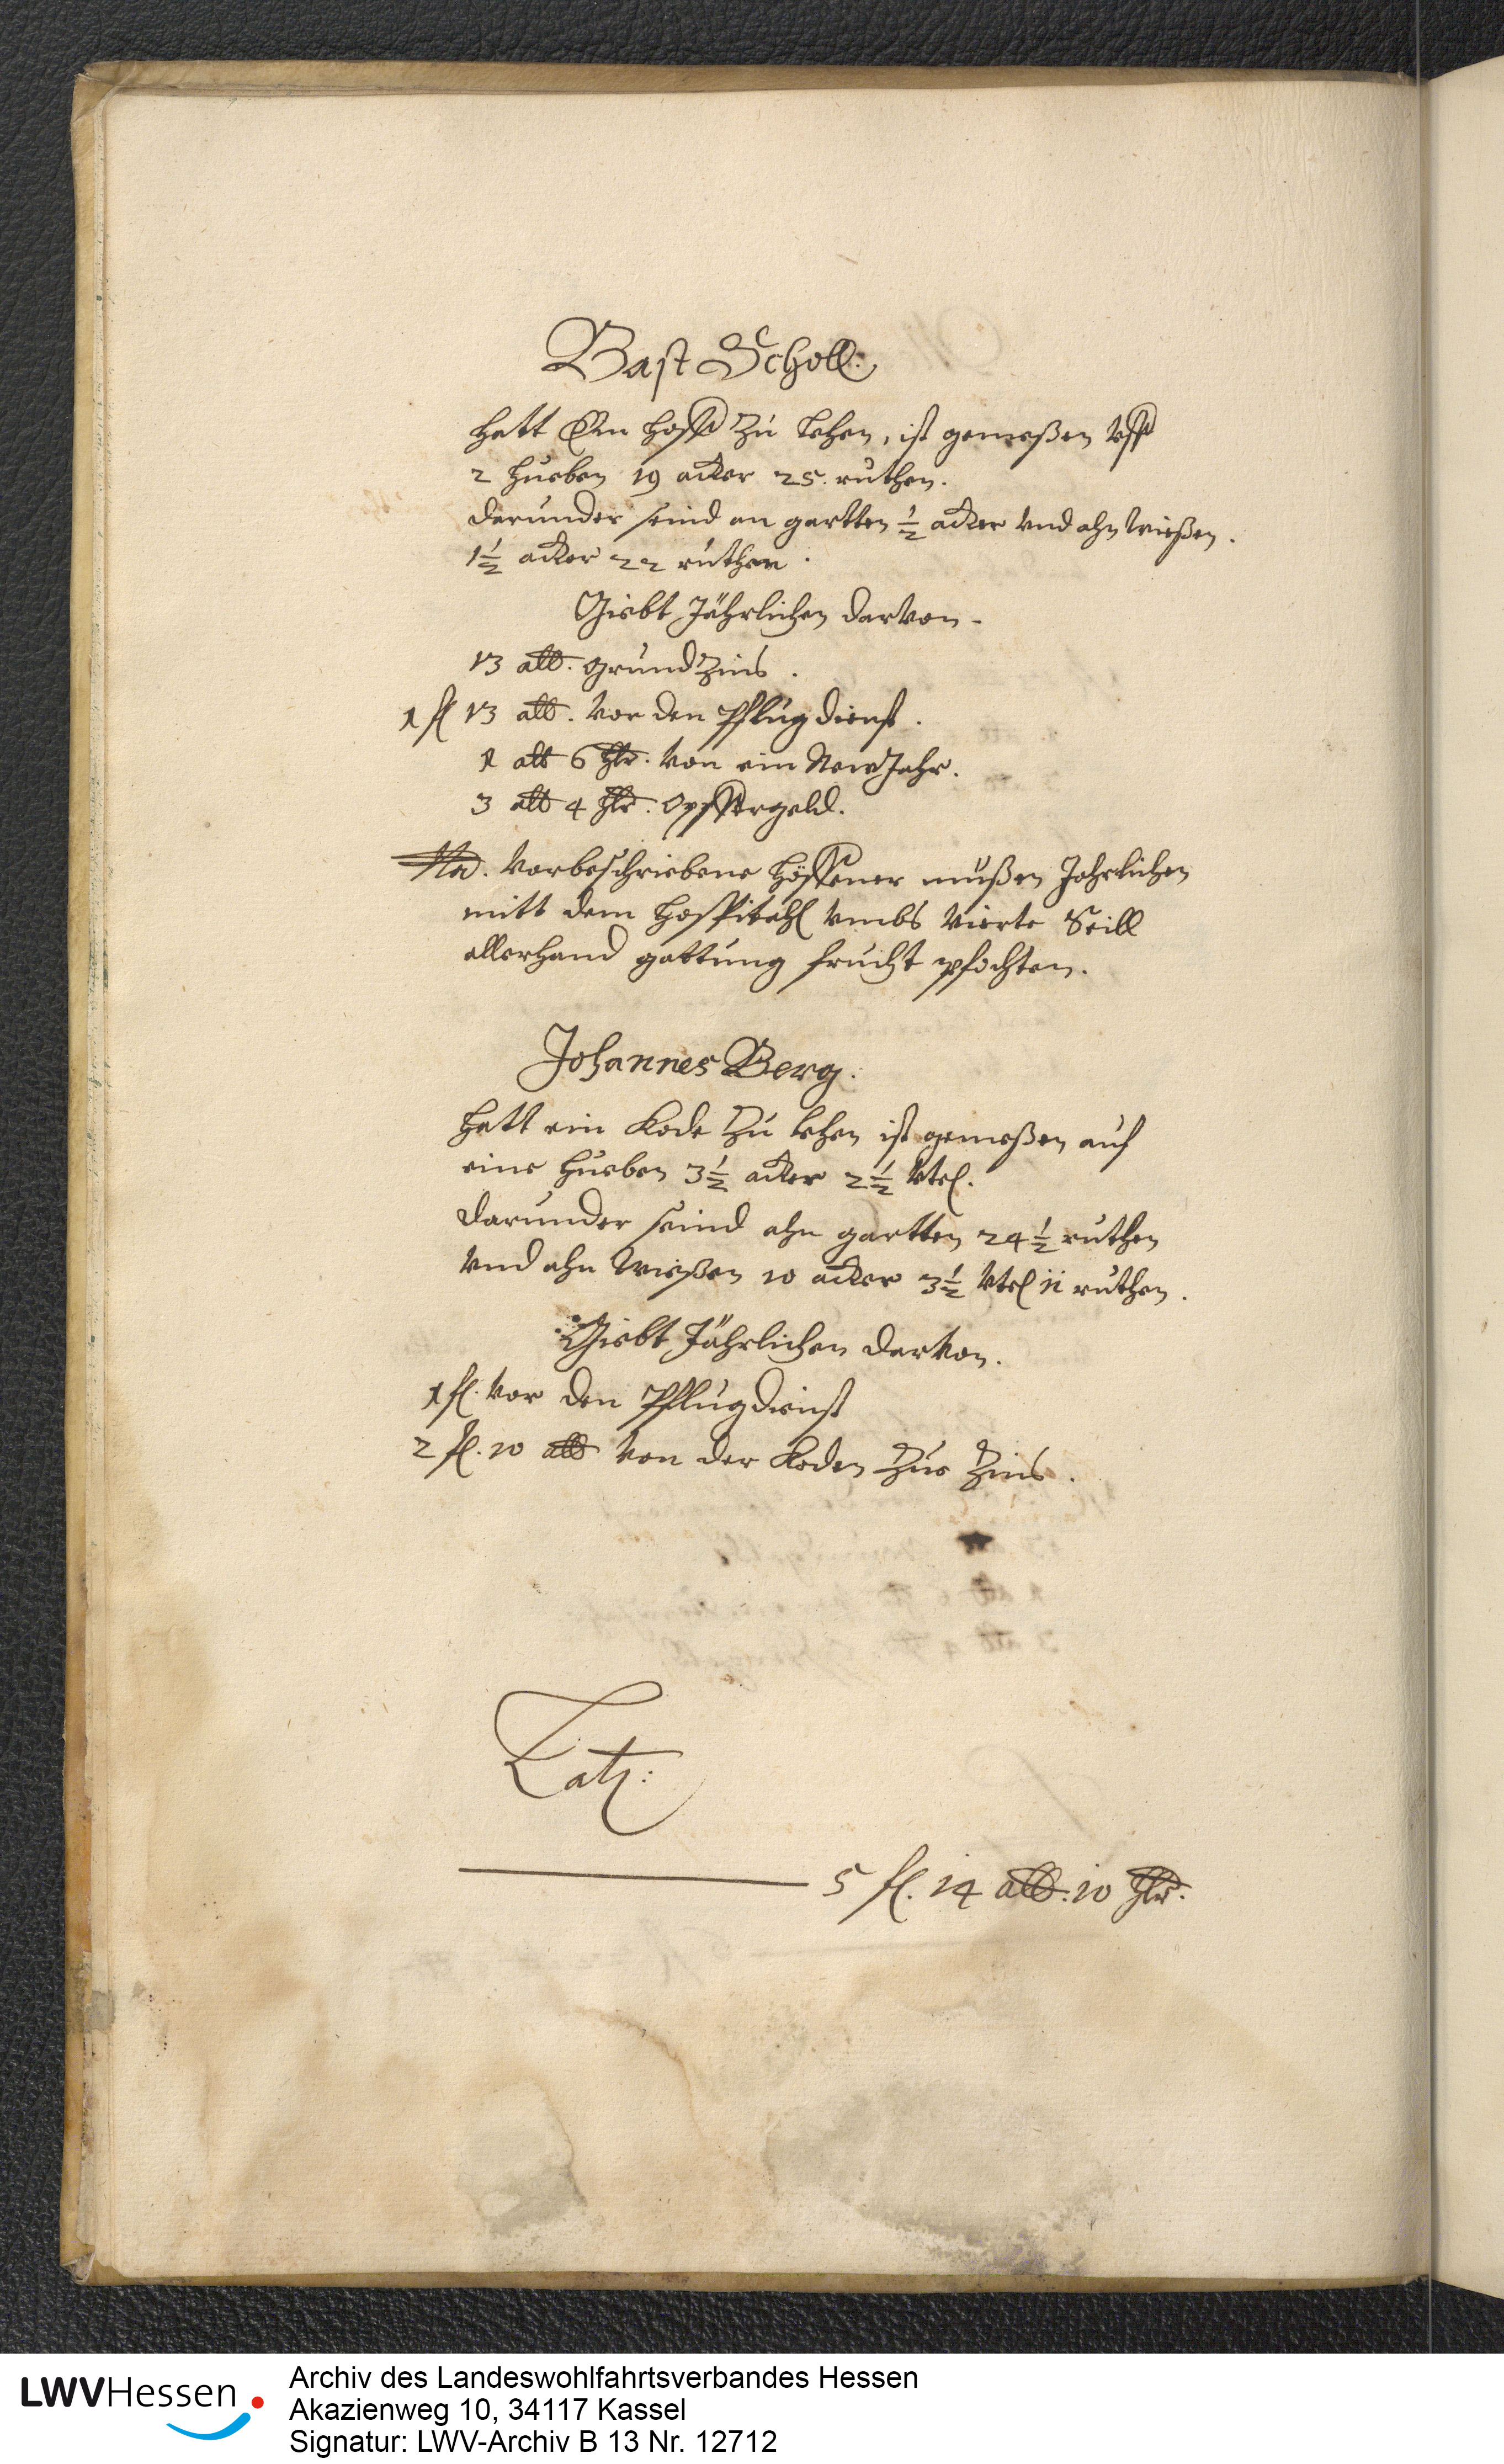 Bast Scholl.
hatt Ein hoff zu lehen, ist gemeßen vff
2 hueben 19 acker 25. ruthen.
darunder seind an gartten ½ acker vnd ahn Wießen.
1½ acker 22 ruthen.
Giebt Jährlichen darvon.
13 alb. grundzins.
1 fl 13 alb. vor den Pflugdienst.
1 alb 6 hlr. von ein NewJahr.
3 alb 4 hlr. Opffergeld.
Na. Vorbeschriebene höffener mußen Jahrlichen
mitt dem Hospitahl vmbs vierte Seill
allerhand gattung frucht pfochten.
Johannes Berg.
hatt ein Kode zu lehen ist gemeßen auf
eine hueben 3½ acker 2½ vtel.
darunder seind ahn gartten 24½ ruthen
vnd ahn Wießen 10 acker 3½ vtel 11 ruthen.
Giebt Jährlichen darvon.
1 fl. vor den Pflugdienst
2 fl. 10 alb von der Koden zue Zins.
Latz:
5 fl. 14 alb. 10 hlr.
LWVHessen
Archiv des Landeswohlfahrtsverbandes Hessen
Akazienweg 10, 34117 Kassel
Signatur: LWV-Archiv B 13 Nr. 12712